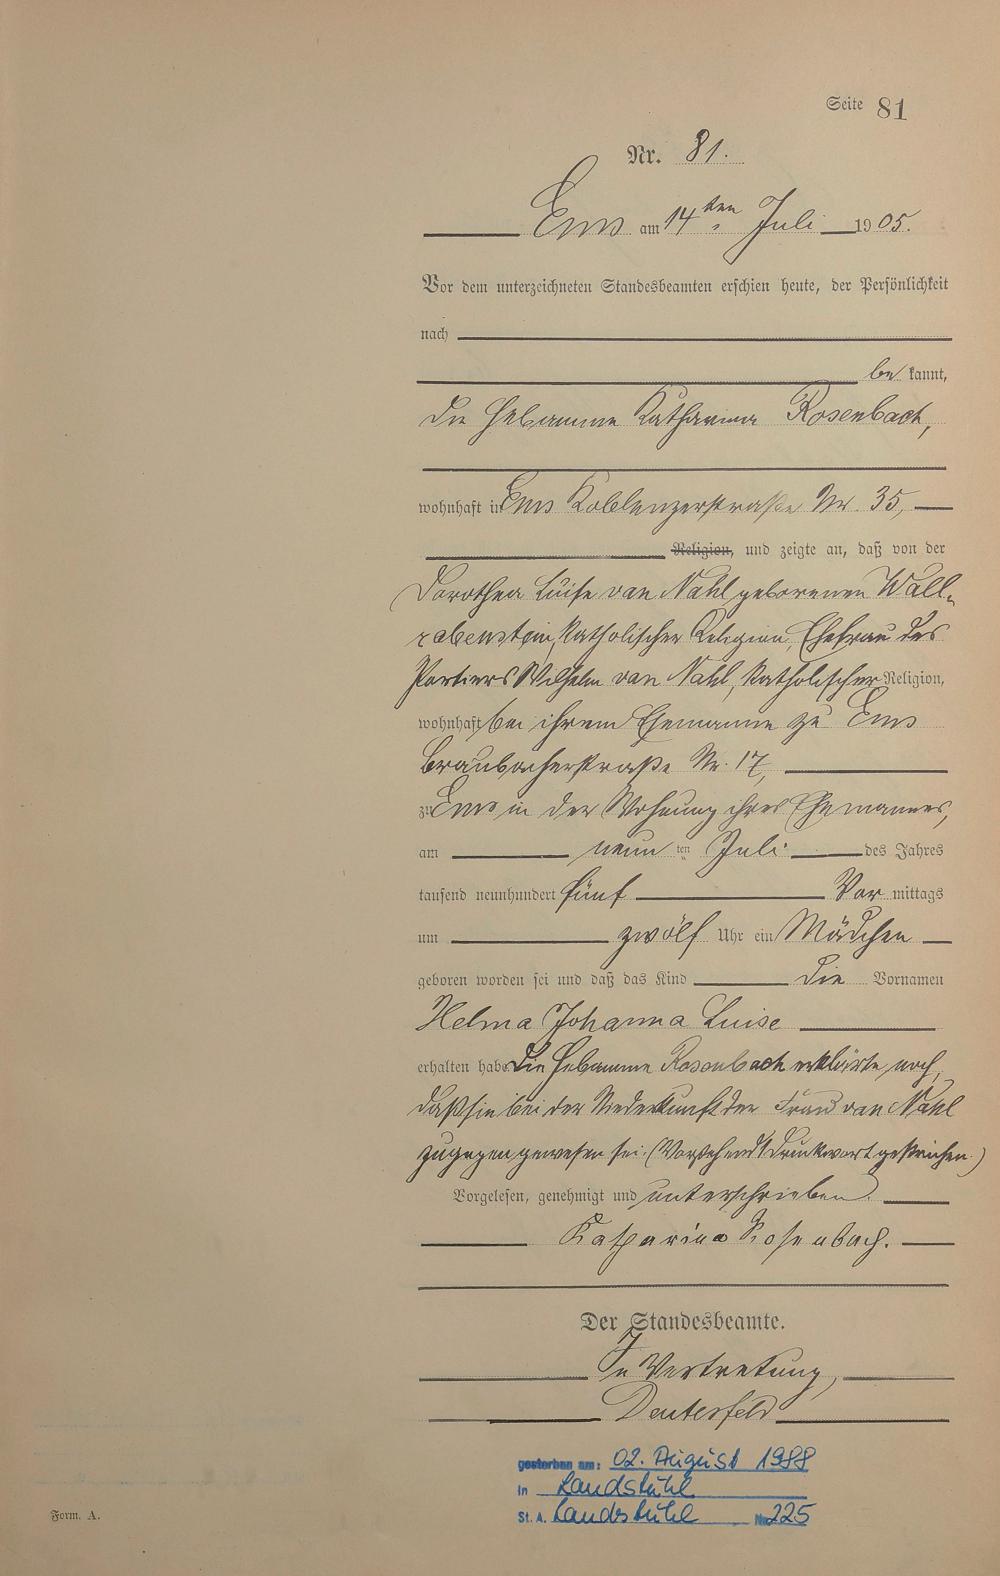 Seite 81
Nr. 81.
Ems am 14ten Juli 1905.
Vor dem unterzeichneten Standesbeamten erschien heute, der Persönlichkeit
nach
be kannt,
die Hebamme Katharina Rosenbach,
wohnhaft in Ems Koblenzerstraße Nr. 35,
Religion, und zeigte an, daß von der
Dorothea Luise van Nahl geborenen Wall-
rabenstein, katholischer Religion, Ehefrau des
Portiers Wilhelm van Nahl, katholischer Religion,
wohnhaft bei ihrem Ehemanne zu Ems
Braubacherstraße Nr. 17,
zu Ems in der Wohnung ihres Ehemannes,
am neun ten Juli des Jahres
tausend neunhundert fünf Vor mittags
um zwölf Uhr ein Mädchen
geboren worden sei und daß das Kind die Vornamen
Helma Johanna Luise
erhalten habe. Die Hebamme Rosenbach erklärte noch,
daß sie bei der Niederkunft der Frau van Nahl
zugegen gewesen sei. (Vorstehend 1 Druckwort gestrichen.)
Vorgelesen, genehmigt und unterschrieben.
Katharina Rosenbach.
Der Standesbeamte.
In Vertretung,
Deuterfeld
gestorben am: 02. August 1988
in Landstuhl
St. A. Landstuhl No 225
Form. A.